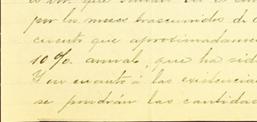 por los meses trascurridos de
cuento que aproximadamen
10 % anual, que ha sid
Y en cuanto á las existencia
se pondrán las cantidad